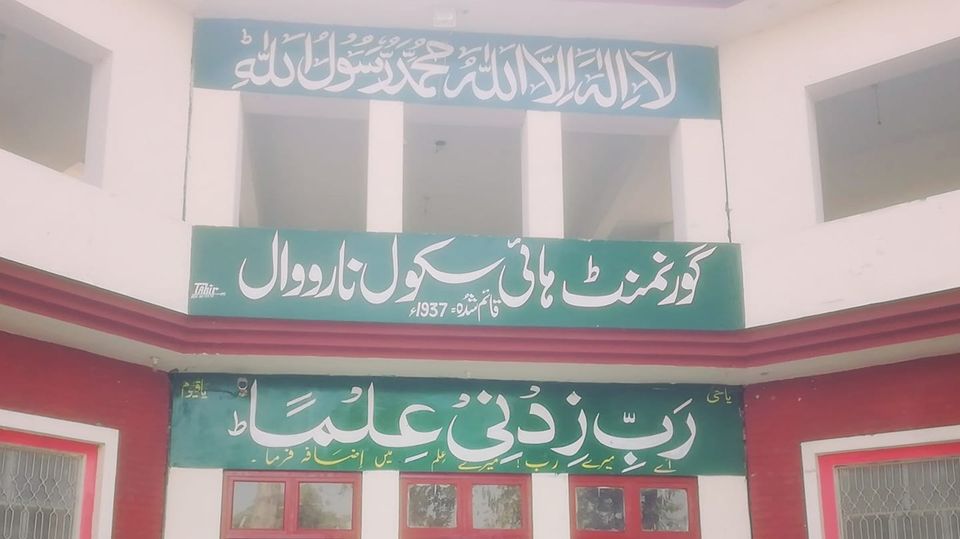 لَا اِلٰهَ اِلَّا اللّٰهُ مُحَمَّدٌ رَّسُوْلُ اللّٰهِ ط
گورنمنٹ ہائی سکول نارووال
قائم شدہ = 1937ء
Tahir
یا حی
یا قیوم
رَبِّ زِدْنِیْ عِلْمًا ط
اے میرے رب ! میرے علم میں اضافہ فرما -